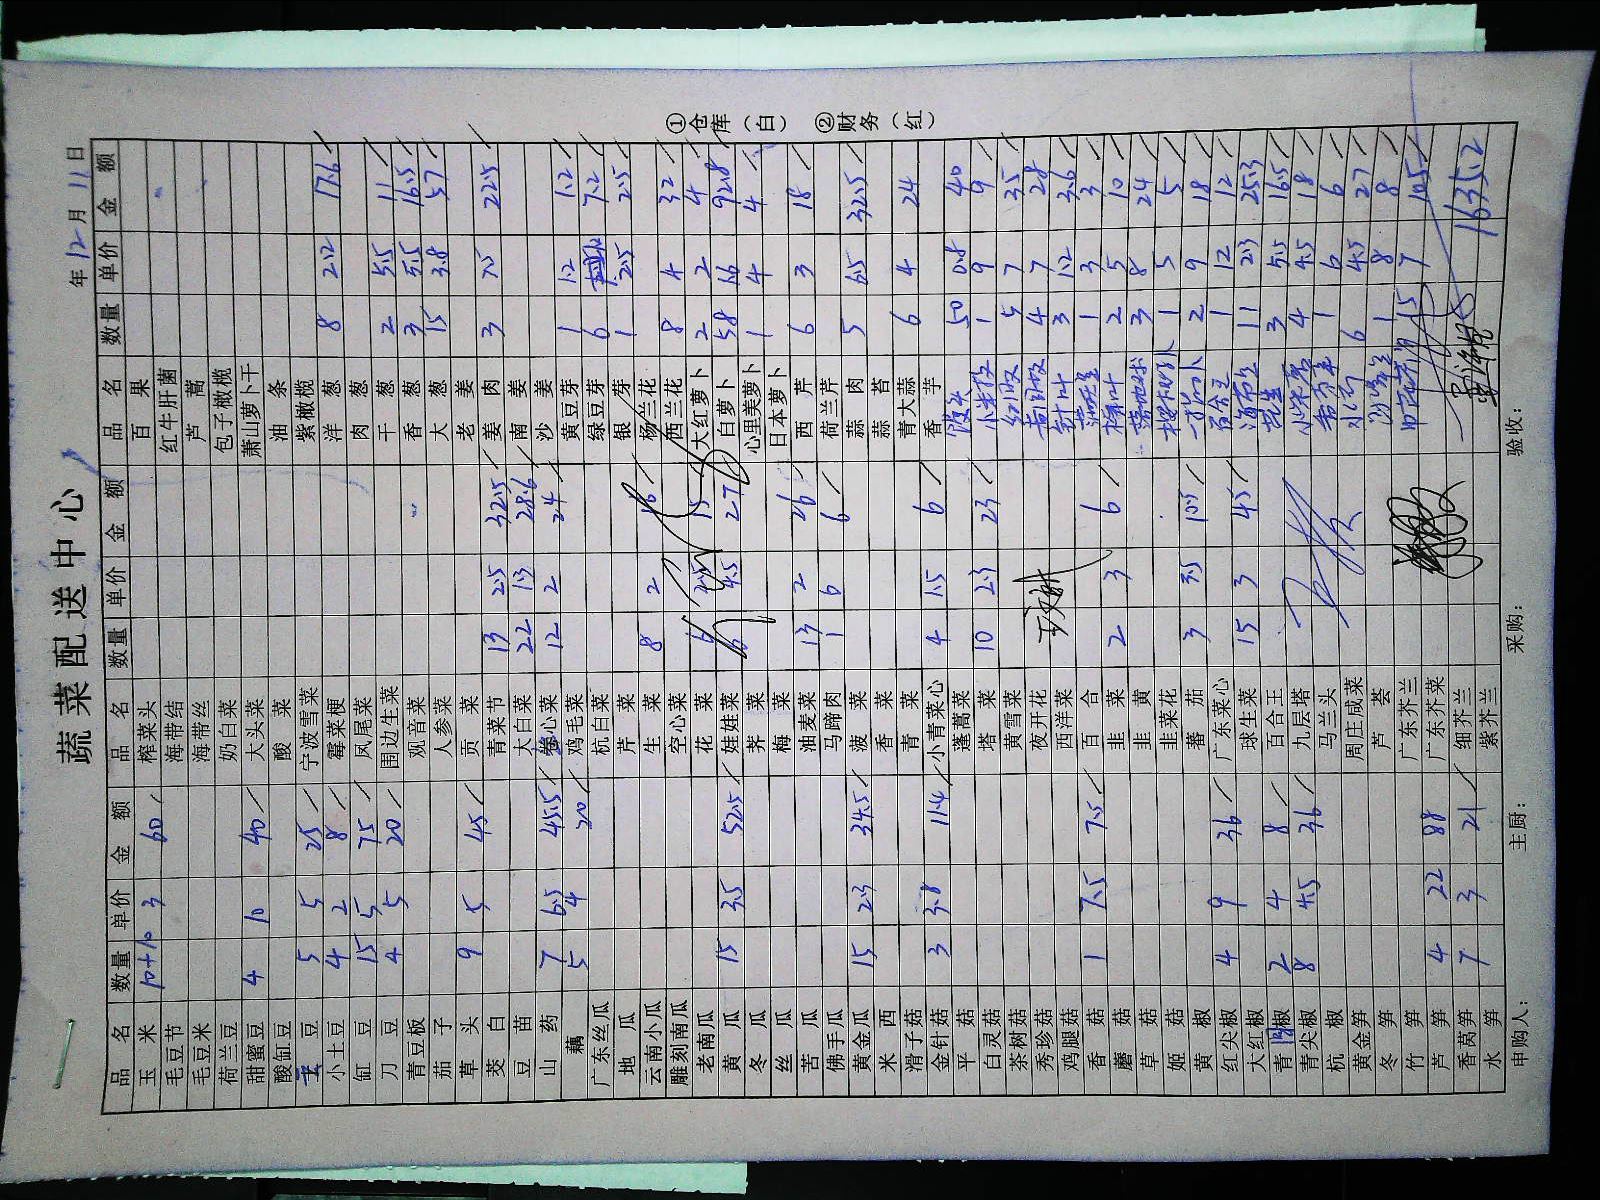 蔬菜配送中心
年 12 月 11 日
品名 数量 单价 金额 品名 数量 单价 金额 品名 数量 单价 金额
玉米 10+10 3 60 榨菜头 百果
毛豆节 海带结 红牛肝菌
毛豆米 海带丝 芦蒿
荷兰豆 奶白菜 包子橄榄
甜蜜豆 4 10 40 大头菜 萧山萝卜干
酸缸豆 酸菜 油条
豆 5 5 25 宁波雪菜 紫橄榄
小土豆 4 2 8 霉菜梗 洋葱 8 2.2 17.6
缸豆 15 5 75 凤尾菜 肉葱
刀豆 4 5 20 围边生菜 干葱 2 5.5 11
青豆板 观音菜 香葱 3 5.5 16.5
茄子 人参菜 大葱 15 3.8 57
草头 9 5 45 贡菜 老姜
茭白 青菜节 13 2.5 32.5 姜肉 3 7.5 22.5
豆苗 大白菜 22 1.3 28.6 南姜
山药 7 6.5 45.5 卷心菜 12 2 24 沙姜
藕 5 4 20 鸡毛菜 黄豆芽 1 1.2 1.2
广东丝瓜 杭白菜 绿豆芽 6 7.2
地瓜 芹菜 银芽 1 2.5 2.5
云南小瓜 生菜 8 2 16 杨兰花
雕刻南瓜 空心菜 西兰花 8 4 32
老南瓜 花菜 6 2.5 15 大红萝卜 2 2 4
黄瓜 15 3.5 52.5 娃娃菜 6 4.5 27 白萝卜 58 1.6 92.8
冬瓜 荠菜 心里美萝卜 1 4 4
丝瓜 梅菜 日本萝卜
苦瓜 油麦菜 13 2 26 西芹 6 3 18
佛手瓜 马蹄肉 1 6 6 荷兰芹
黄金瓜 15 2.3 34.5 菠菜 蒜肉 5 6.5 32.5
米西 香菜 蒜苔
滑子菇 青菜 青大蒜 6 4 24
金针菇 3 3.8 11.4 小青菜心 4 1.5 6 香芋
平菇 蓬蒿菜 50 0.8 40
白灵菇 塔菜 10 2.3 23 小米椒 1 9 9
茶树菇 黄雪菜 红椒 5 7 35
秀珍菇 夜开花 黄椒 4 7 28
鸡腿菇 西洋菜 3 1.2 3.6
香菇 1 7.5 7.5 百合 1 3 3
蘑菇 韭菜 2 3 6 2 5 10
草菇 韭黄 3 8 24
姬菇 韭菜花 1 5 5
黄椒 蕃茄 3 3.5 10.5 2 9 18
红尖椒 4 9 36 广东菜心 1 12 12
大红椒 球生菜 15 3 45 11 2.3 25.3
青椒 2 4 8 百合王 3 5.5 16.5
青尖椒 8 4.5 36 九层塔 4 4.5 18
杭椒 马兰头 1 6 6
黄金笋 周庄咸菜 6 4.5 27
冬笋 芦荟 1 8 8
竹笋 广东芥兰 15 7 105
芦笋 4 22 88 广东芥菜
香莴笋 7 3 21 细芥兰 1635.2
水笋 紫芥兰
申购人： 主厨： 采购： 验收：
①仓库（白） ②财务（红）